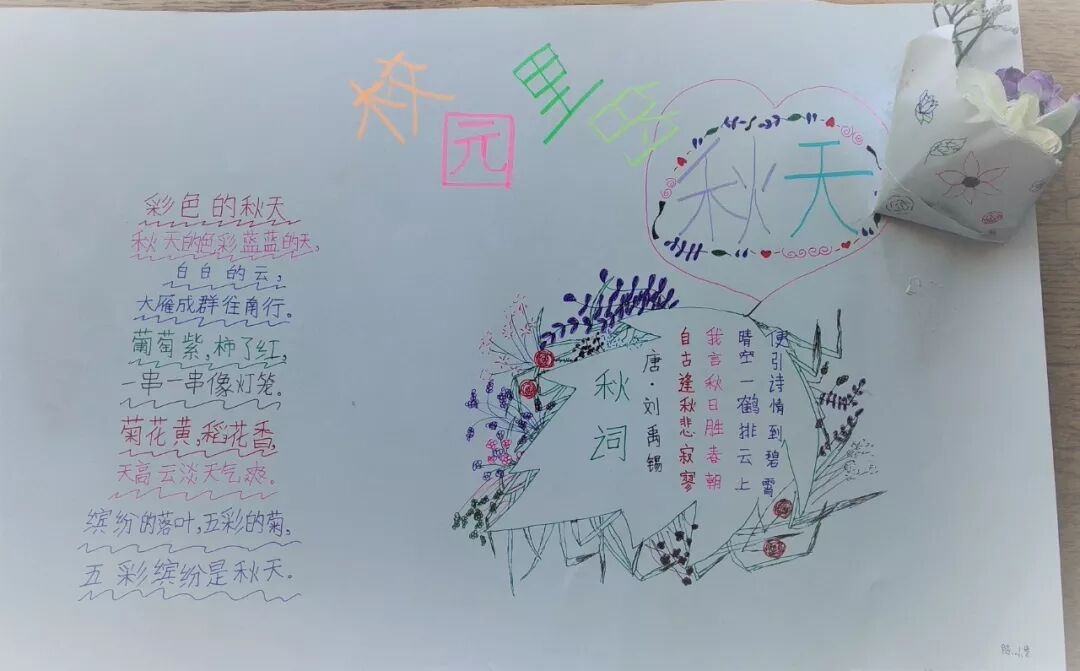 校园里的
秋天
彩色的秋天
秋天的色彩蓝蓝的天,
白白的云,
大雁成群往南行。
葡萄紫,柿了红,
一串一串像灯笼。
菊花黄,稻花香,
天高云淡天气爽。
缤纷的落叶,五彩的菊,
五彩缤纷是秋天.
秋词
唐·刘禹锡
自古逢秋悲寂寥
我言秋日胜春朝
晴空一鹤排云上
便引诗情到碧霄